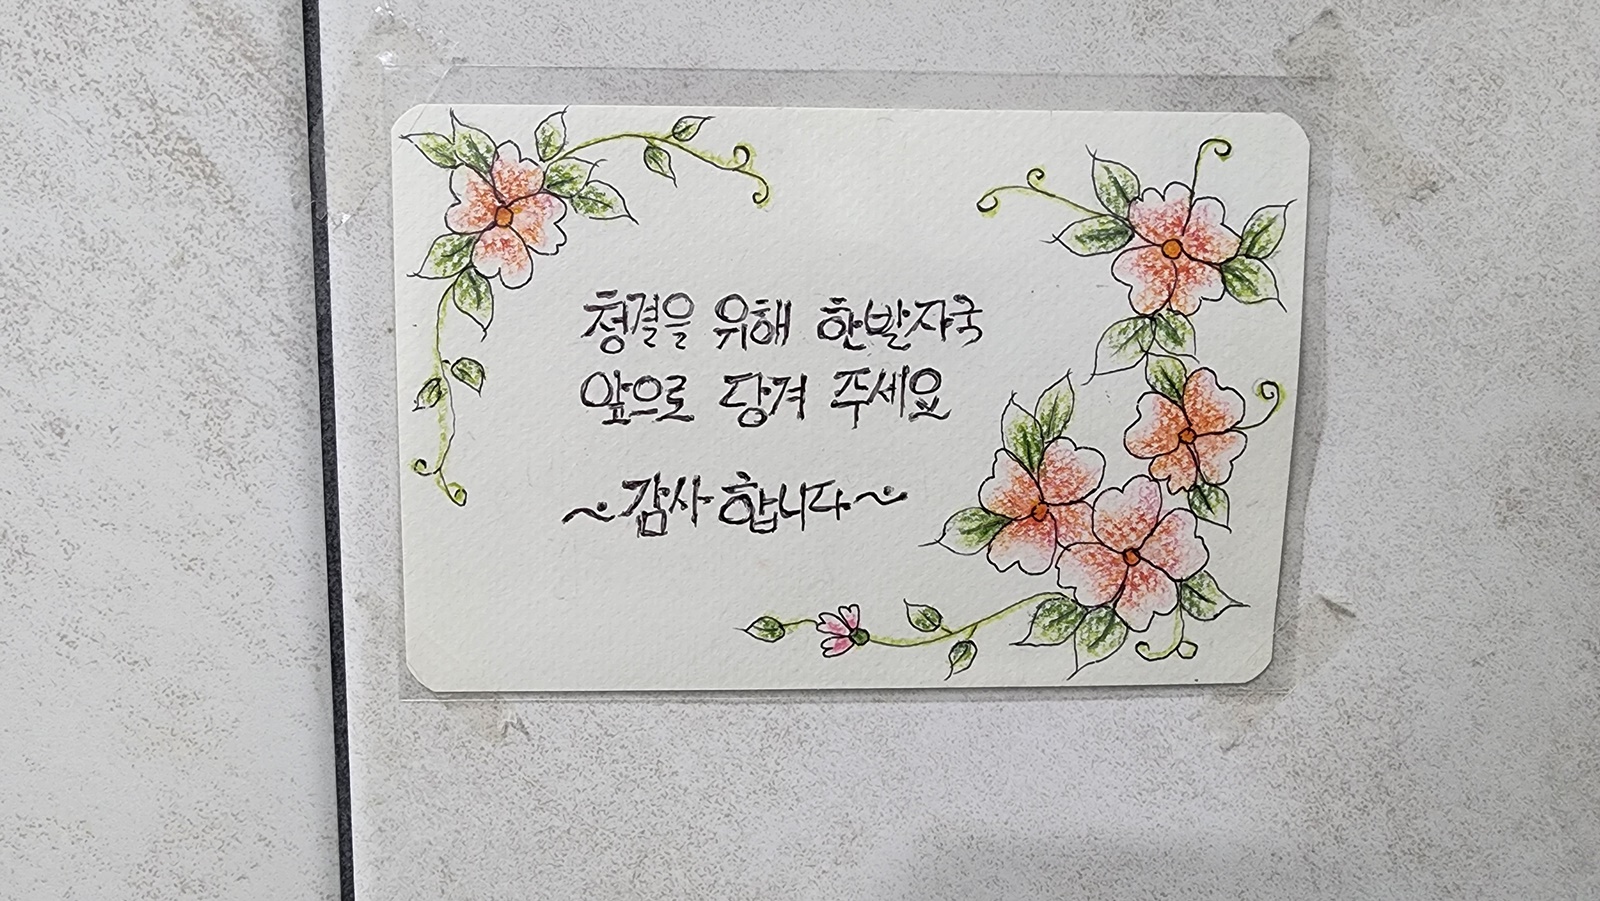 청결을 위해 한발자국
앞으로 당겨 주세요
~감사 합니다~